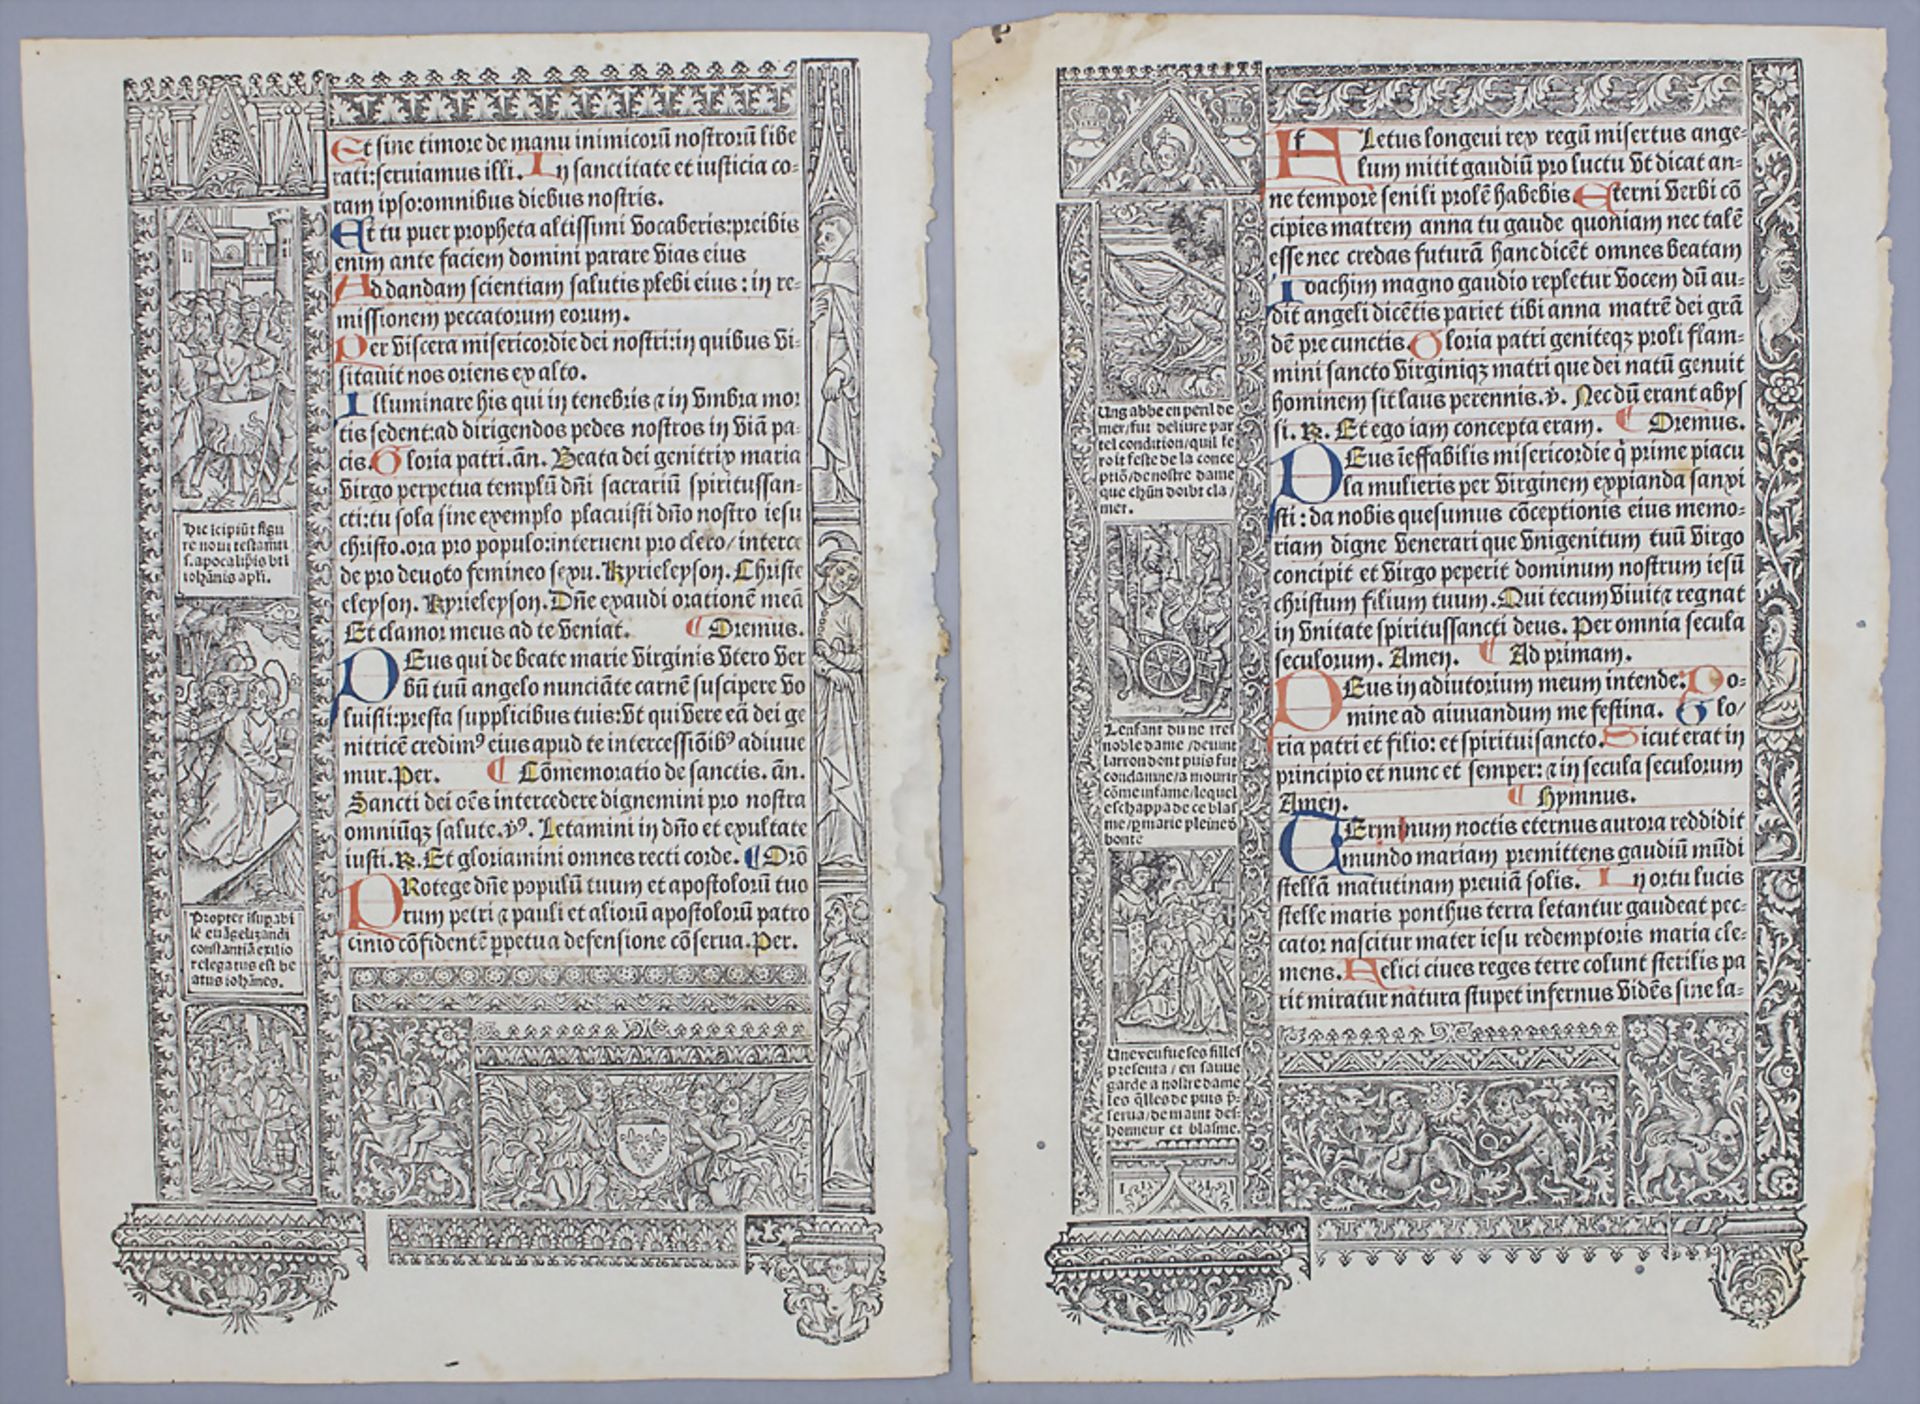 Et sine timore de manu inimicorū nostrorū libe
rati:seruiamus illi. In sanctitate et iusticia co-
ram ipso:omnibus diebus nostris.
Et tu puer propheta altissimi vocaberis:preibis
enim ante faciem domini parare vias eius
Ad dandam scientiam salutis plebi eius : in re-
missionem peccatorum eorum.
Per viscera misericordie dei nostri:in quibus vi-
sitauit nos oriens ex alto.
Illuminare his qui in tenebris ⁊ in vmbra mor
tis sedent:ad dirigendos pedes nostros in viā pa-
cis. Gloria patri. añ. Beata dei genitrix maria
virgo perpetua templū dñi sacrariū spiritussan-
cti:tu sola sine exemplo placuisti dño nostro iesu
christo.ora pro populo:interueni pro clero/interce
de pro deuoto femineo sexu. Kyrieleyson. Christe
eleyson. Kyrieleyson. Dñe exaudi orationē meā
Et clamor meus ad te veniat. ¶ Oremus.
DEus qui de beate marie virginis vtero ver
bū tuū angelo nunciāte carnē suscipere vo
luisti:presta supplicibus tuis:vt qui vere eā dei ge
nitricē credimꝰ eius apud te intercessiōibꝰ adiuue
mur.Per. ¶ Cōmemoratio de sanctis. añ.
Sancti dei oēs intercedere dignemini pro nostra
omniūqꝫ salute. vꝰ. Letamini in dño et exultate
iusti. ℞. Et gloriamini omnes recti corde. ¶ Orō
PRotege dñe populū tuum et apostolorū tuo
rum petri ⁊ pauli et aliorū apostolorū patro
cinio cōfidentē ꝑpetua defensione cōserua. Per.
Hic īcipiūt figu
re noui testamēti
s. apocalipsis bti
iohānis apli.
Propter īsupabi
lē euāgelizandi
constantiā exilio
relegatus est be
atus iohānes.
ALetus longeui rex regū misertus ange-
lum mitit gaudiū pro luctu vt dicat an-
ne tempore senili prolē habebis Eterni verbi cō
cipies matrem anna tu gaude quoniam nec talē
esse nec credas futurā hanc dicēt omnes beatam
Ioachim magno gaudio repletur vocem dū au-
dit angeli dicētis pariet tibi anna matrē dei grā
dē pre cunctis. Gloria patri geniteqꝫ proli flam-
mini sancto virginiqꝫ matri que dei natū genuit
hominem sit laus perennis. v. Nec dū erant abys
si. ℞. Et ego iam concepta eram. ¶ Oremus.
DEus ieffabilis misericordie q̄ prime piacu
la mulieris per virginem expianda sanxi
sti : da nobis quesumus cōceptionis eius memo-
riam digne venerari que vnigenitum tuū virgo
concipit et virgo peperit dominum nostrum iesū
christum filium tuum. Qui tecum viuit ⁊ regnat
in vnitate spiritussancti deus. Per omnia secula
seculorum. Amen. ¶ Ad primam.
DEus in adiutorium meum intende: Do-
mine ad aiuuandum me festina. Glo/
ria patri et filio: et spirituisancto. Sicut erat in
principio et nunc et semper: ⁊ in secula seculorum
Amen. ¶ Hymnus.
TErminum noctis eternus aurora reddidit
mundo mariam premittens gaudiū mūdi
stellā matutinam preuiā solis. In ortu lucis
stelle maris ponthus terra letantur gaudeat pec-
cator nascitur mater iesu redemptoris maria cle-
mens. Felici ciues reges terre colunt sterilis pa
rit miratur natura stupet infernus vidēs sine la-
Ung abbe en peril de
mer/fut deliure par
tel condition/quil fe
roit feste de la conce
ptiō/de nostre dame
que chūn doibt cla/
mer.
Lenfant dune tres
noble dame/deuint
larron dont puis fut
condamne/a mourir
cōme infame/lequel
eschappa de ce blas
me/ꝑ marie pleine ō
bonte
Une veufue ses filles
presenta/en sauue
garde a nostre dame
les q̄lles de puis p̄-
serua/de maint des-
honneur et blasme.